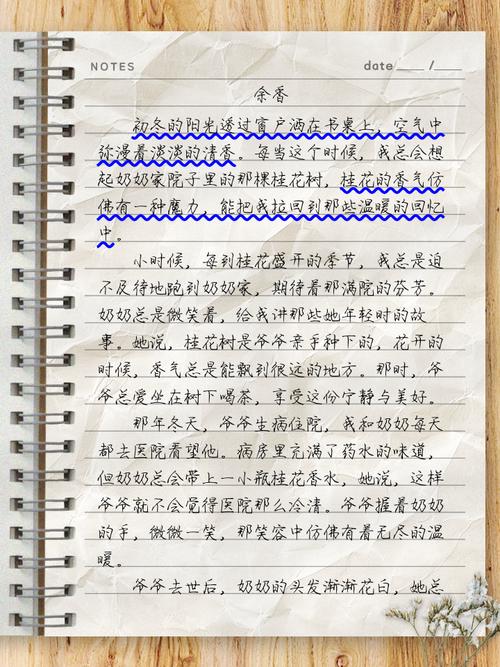 NOTES date /
余香
初冬的阳光透过窗户洒在书桌上，空气中
弥漫着淡淡的清香。每当这个时候，我总会想
起奶奶家院子里的那棵桂花树，桂花的香气仿
佛有一种魔力，能把我拉回到那些温暖的回忆
中。
小时候，每到桂花盛开的季节，我总是迫
不及待地跑到奶奶家，期待着那满院的芬芳。
奶奶总是微笑着，给我讲那些她年轻时的故
事。她说，桂花树是爷爷亲手种下的，花开的
时候，香气总是能飘到很远的地方。那时，爷
爷总爱坐在树下喝茶，享受这份宁静与美好。
那年冬天，爷爷生病住院，我和奶奶每天
都去医院看望他。病房里充满了药水的味道，
但奶奶总会带上一小瓶桂花香水，她说，这样
爷爷就不会觉得医院那么冷清。爷爷握着奶奶
的手，微微一笑，那笑容中仿佛有着无尽的温
暖。
爷爷去世后，奶奶的头发渐渐花白，她总